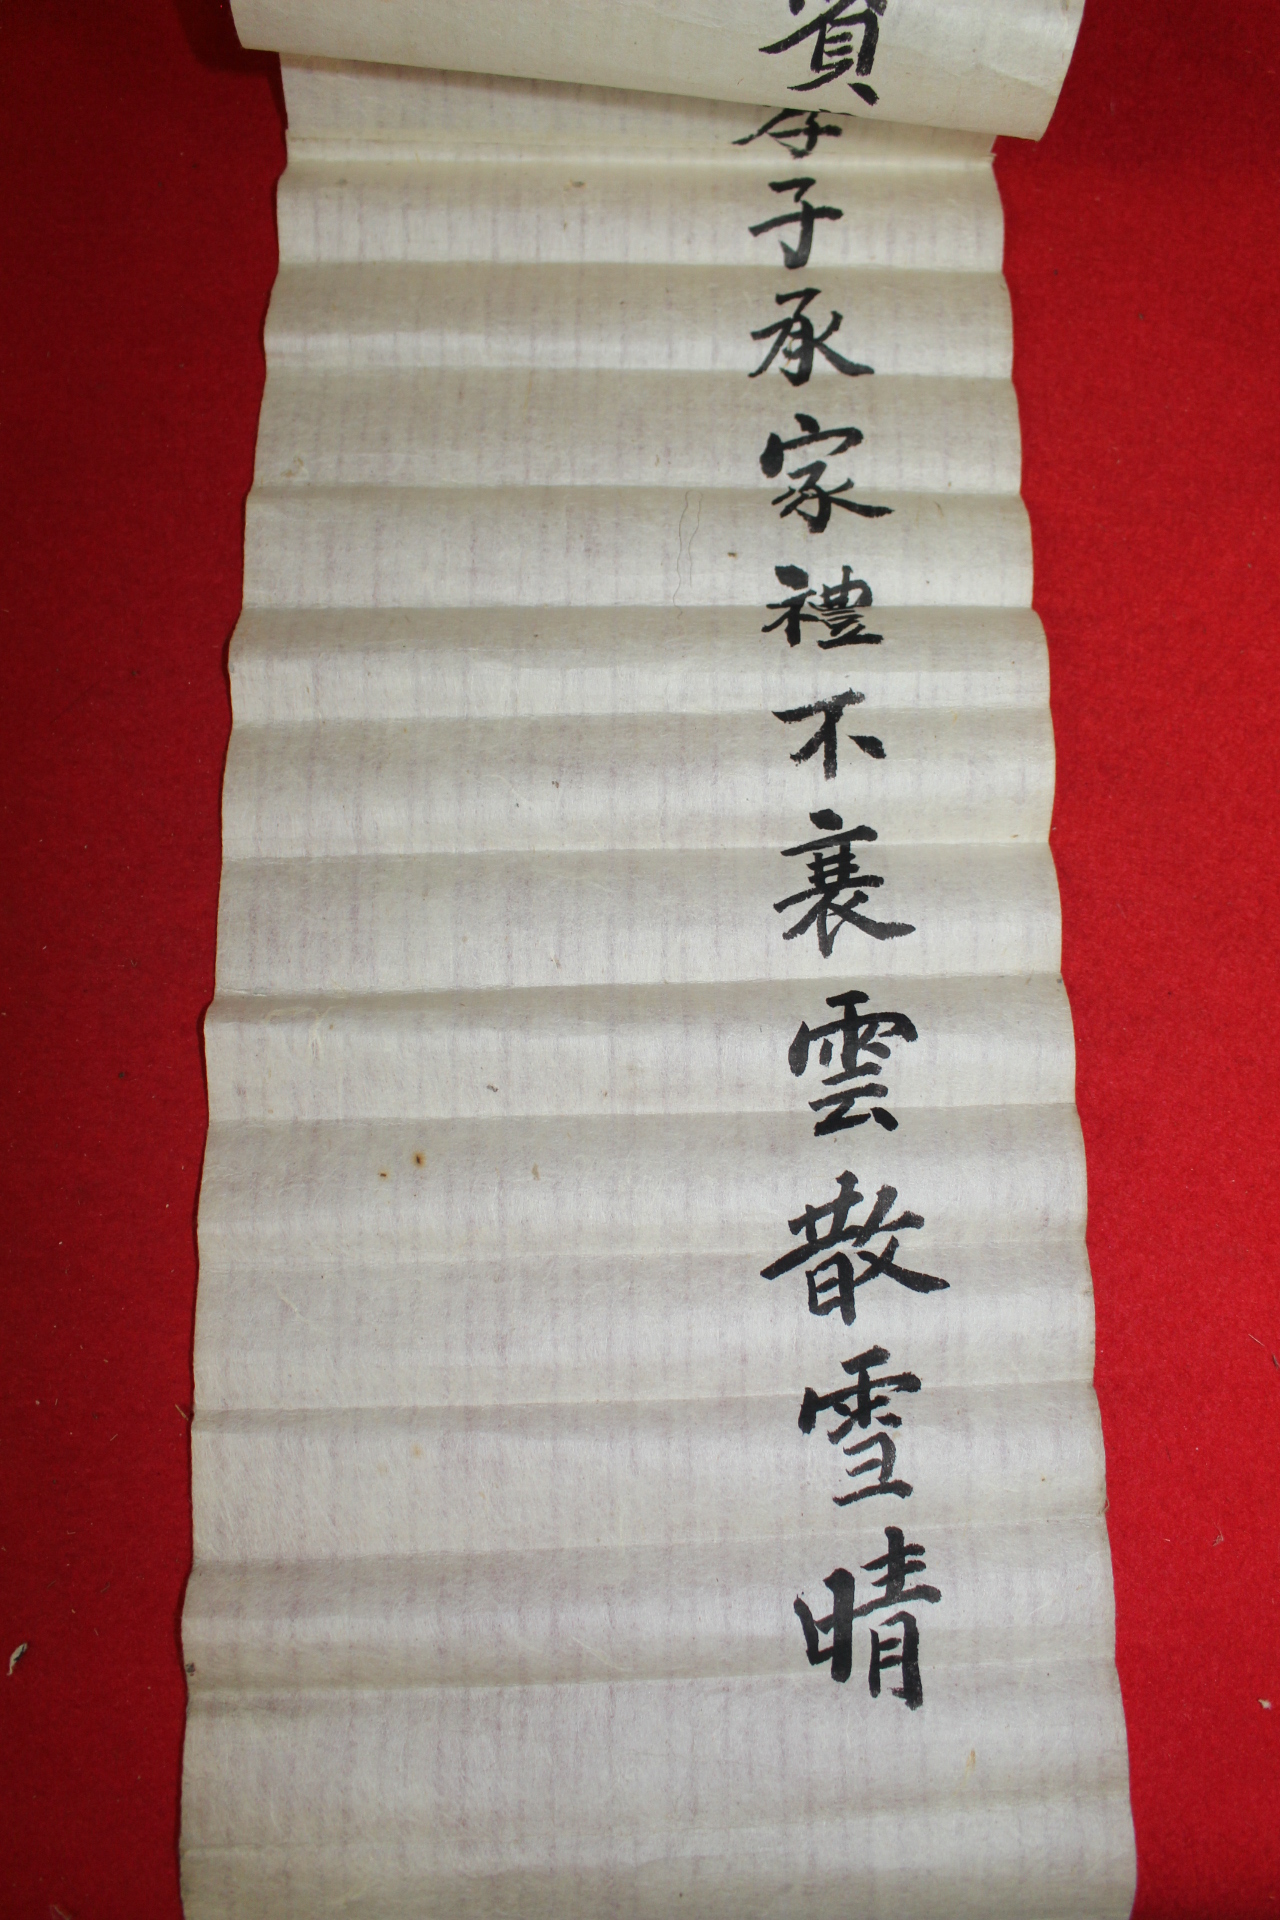 孝子承家禮不衰雲散雪晴